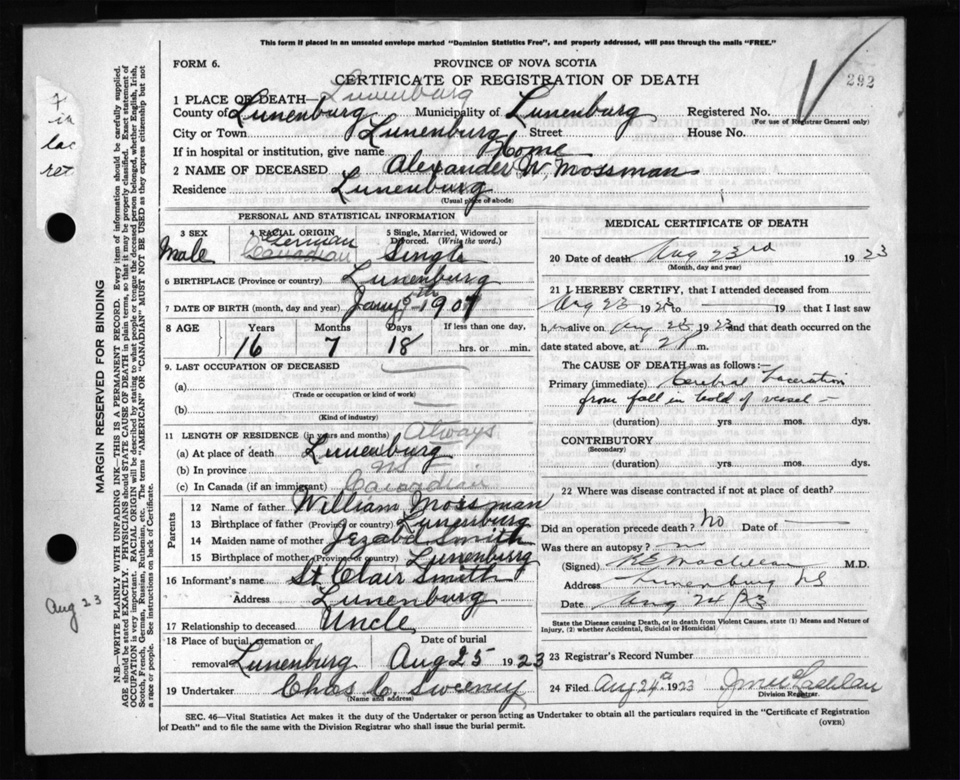 This form if placed in an unsealed envelope marked "Dominion Statistics Free", and properly addressed, will pass through the mails "FREE."
FORM 6.
PROVINCE OF NOVA SCOTIA
CERTIFICATE OF REGISTRATION OF DEATH
292
1 PLACE OF DEATH— Lunenburg
County of Lunenburg Municipality of Lunenburg Registered No.
(For use of Registrar General only)
City or Town Lunenburg Street House No.
If in hospital or institution, give name Home
2 NAME OF DECEASED Alexander W. Mossman
Residence Lunenburg
(Usual place of abode)
PERSONAL AND STATISTICAL INFORMATION
3 SEX Male
4 RACIAL ORIGIN German Canadian
5 Single, Married, Widowed or Divorced. (Write the word.) Single
6 BIRTHPLACE (Province or country) Lunenburg
7 DATE OF BIRTH (month, day and year) Jany 5th 1907
8 AGE Years Months Days If less than one day,
16 7 18 hrs. or min.
9. LAST OCCUPATION OF DECEASED
(a)
(Trade or occupation or kind of work)
(b)
(Kind of industry)
11 LENGTH OF RESIDENCE (in years and months) Always
(a) At place of death Lunenburg
(b) In province NS
(c) In Canada (if an immigrant) Canadian
Parents
12 Name of father William Mossman
13 Birthplace of father (Province or country) Lunenburg
14 Maiden name of mother Jezabel Smith
15 Birthplace of mother (Province or country) Lunenburg
16 Informant's name St. Clair Smith
Address Lunenburg
17 Relationship to deceased Uncle
18 Place of burial, cremation or removal Lunenburg
Date of burial Aug 25 1923
19 Undertaker Chas C. Sweeney
(Name and address)
MEDICAL CERTIFICATE OF DEATH
20 Date of death Aug 23rd 1923
(Month, day and year)
21 I HEREBY CERTIFY, that I attended deceased from
Aug 23 1923 to 19 that I last saw
him alive on Aug 23 1923 and that death occurred on the
date stated above, at m.
The CAUSE OF DEATH was as follows:—
Primary (immediate) Cerebral Laceration
from fall in hold of vessel –
(duration) yrs mos. dys.
CONTRIBUTORY
(Secondary)
(duration) yrs. mos. dys.
22 Where was disease contracted if not at place of death?
Did an operation precede death? No Date of
Was there an autopsy? no
(Signed) M.D.
Address Lunenburg NS
Date Aug 24 / 23
State the Disease causing Death, or in death from Violent Causes, state (1) Means and Nature of
Injury, (2) whether Accidental, Suicidal or Homicidal.
23 Registrar's Record Number
24 Filed Aug 24th 1923
Division Registrar.
SEC. 46—Vital Statistics Act makes it the duty of the Undertaker or person acting as Undertaker to obtain all the particulars required in the "Certificate of Registration
of Death" and to file the same with the Division Registrar who shall issue the burial permit. (OVER)
MARGIN RESERVED FOR BINDING
N.B.—WRITE PLAINLY, WITH UNFADING INK—THIS IS A PERMANENT RECORD. Every item of information should be carefully supplied.
AGE should be stated EXACTLY. PHYSICIANS should STATE CAUSE OF DEATH in plain terms, so that it may be properly classified. Exact statement of
OCCUPATION is very important. RACIAL ORIGIN will be described by stating to what people or tongue the deceased person belonged, whether English, Irish,
Scotch, French, German, Russian, Ruthenian, etc. The terms "AMERICAN" OR "CANADIAN" MUST NOT BE USED as they express citizenship but not
a race or people. See instructions on back of Certificate.
in
lac
ret
Aug 23